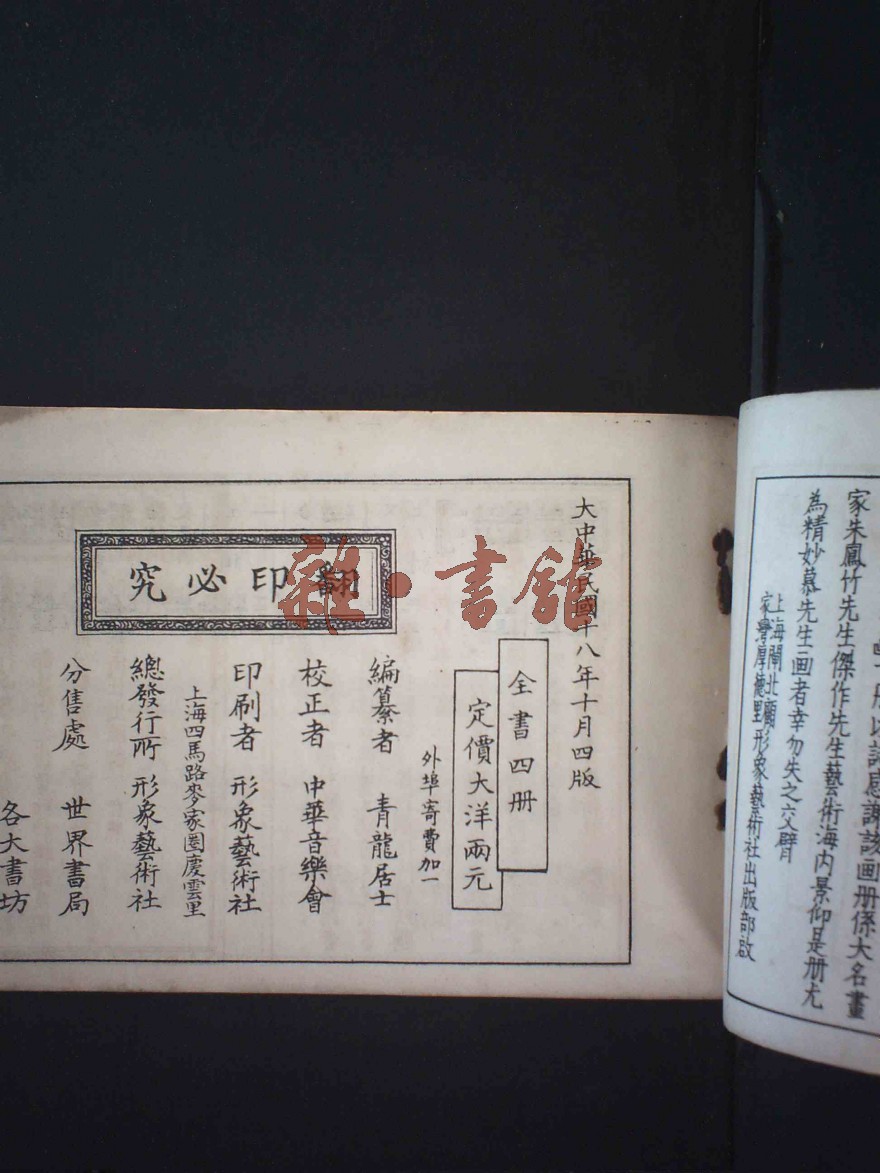 冊以誌感謝該画册係大名畫
家朱鳳竹先生傑作先生藝術海内景仰是册尤
為精妙慕先生画者幸勿失之交臂
上海閘北顧
家灣厚德里形象藝術社出版部啟
大中華民國十八年十月四版
全書四册
定價大洋兩元
外埠寄費加一
翻印必究
編纂者 青龍居士
校正者 中華音樂會
印刷者 形象藝術社
上海四馬路麥家圈慶雲里
總發行所 形象藝術社
分售處 世界書局
各大書坊
雜·書館